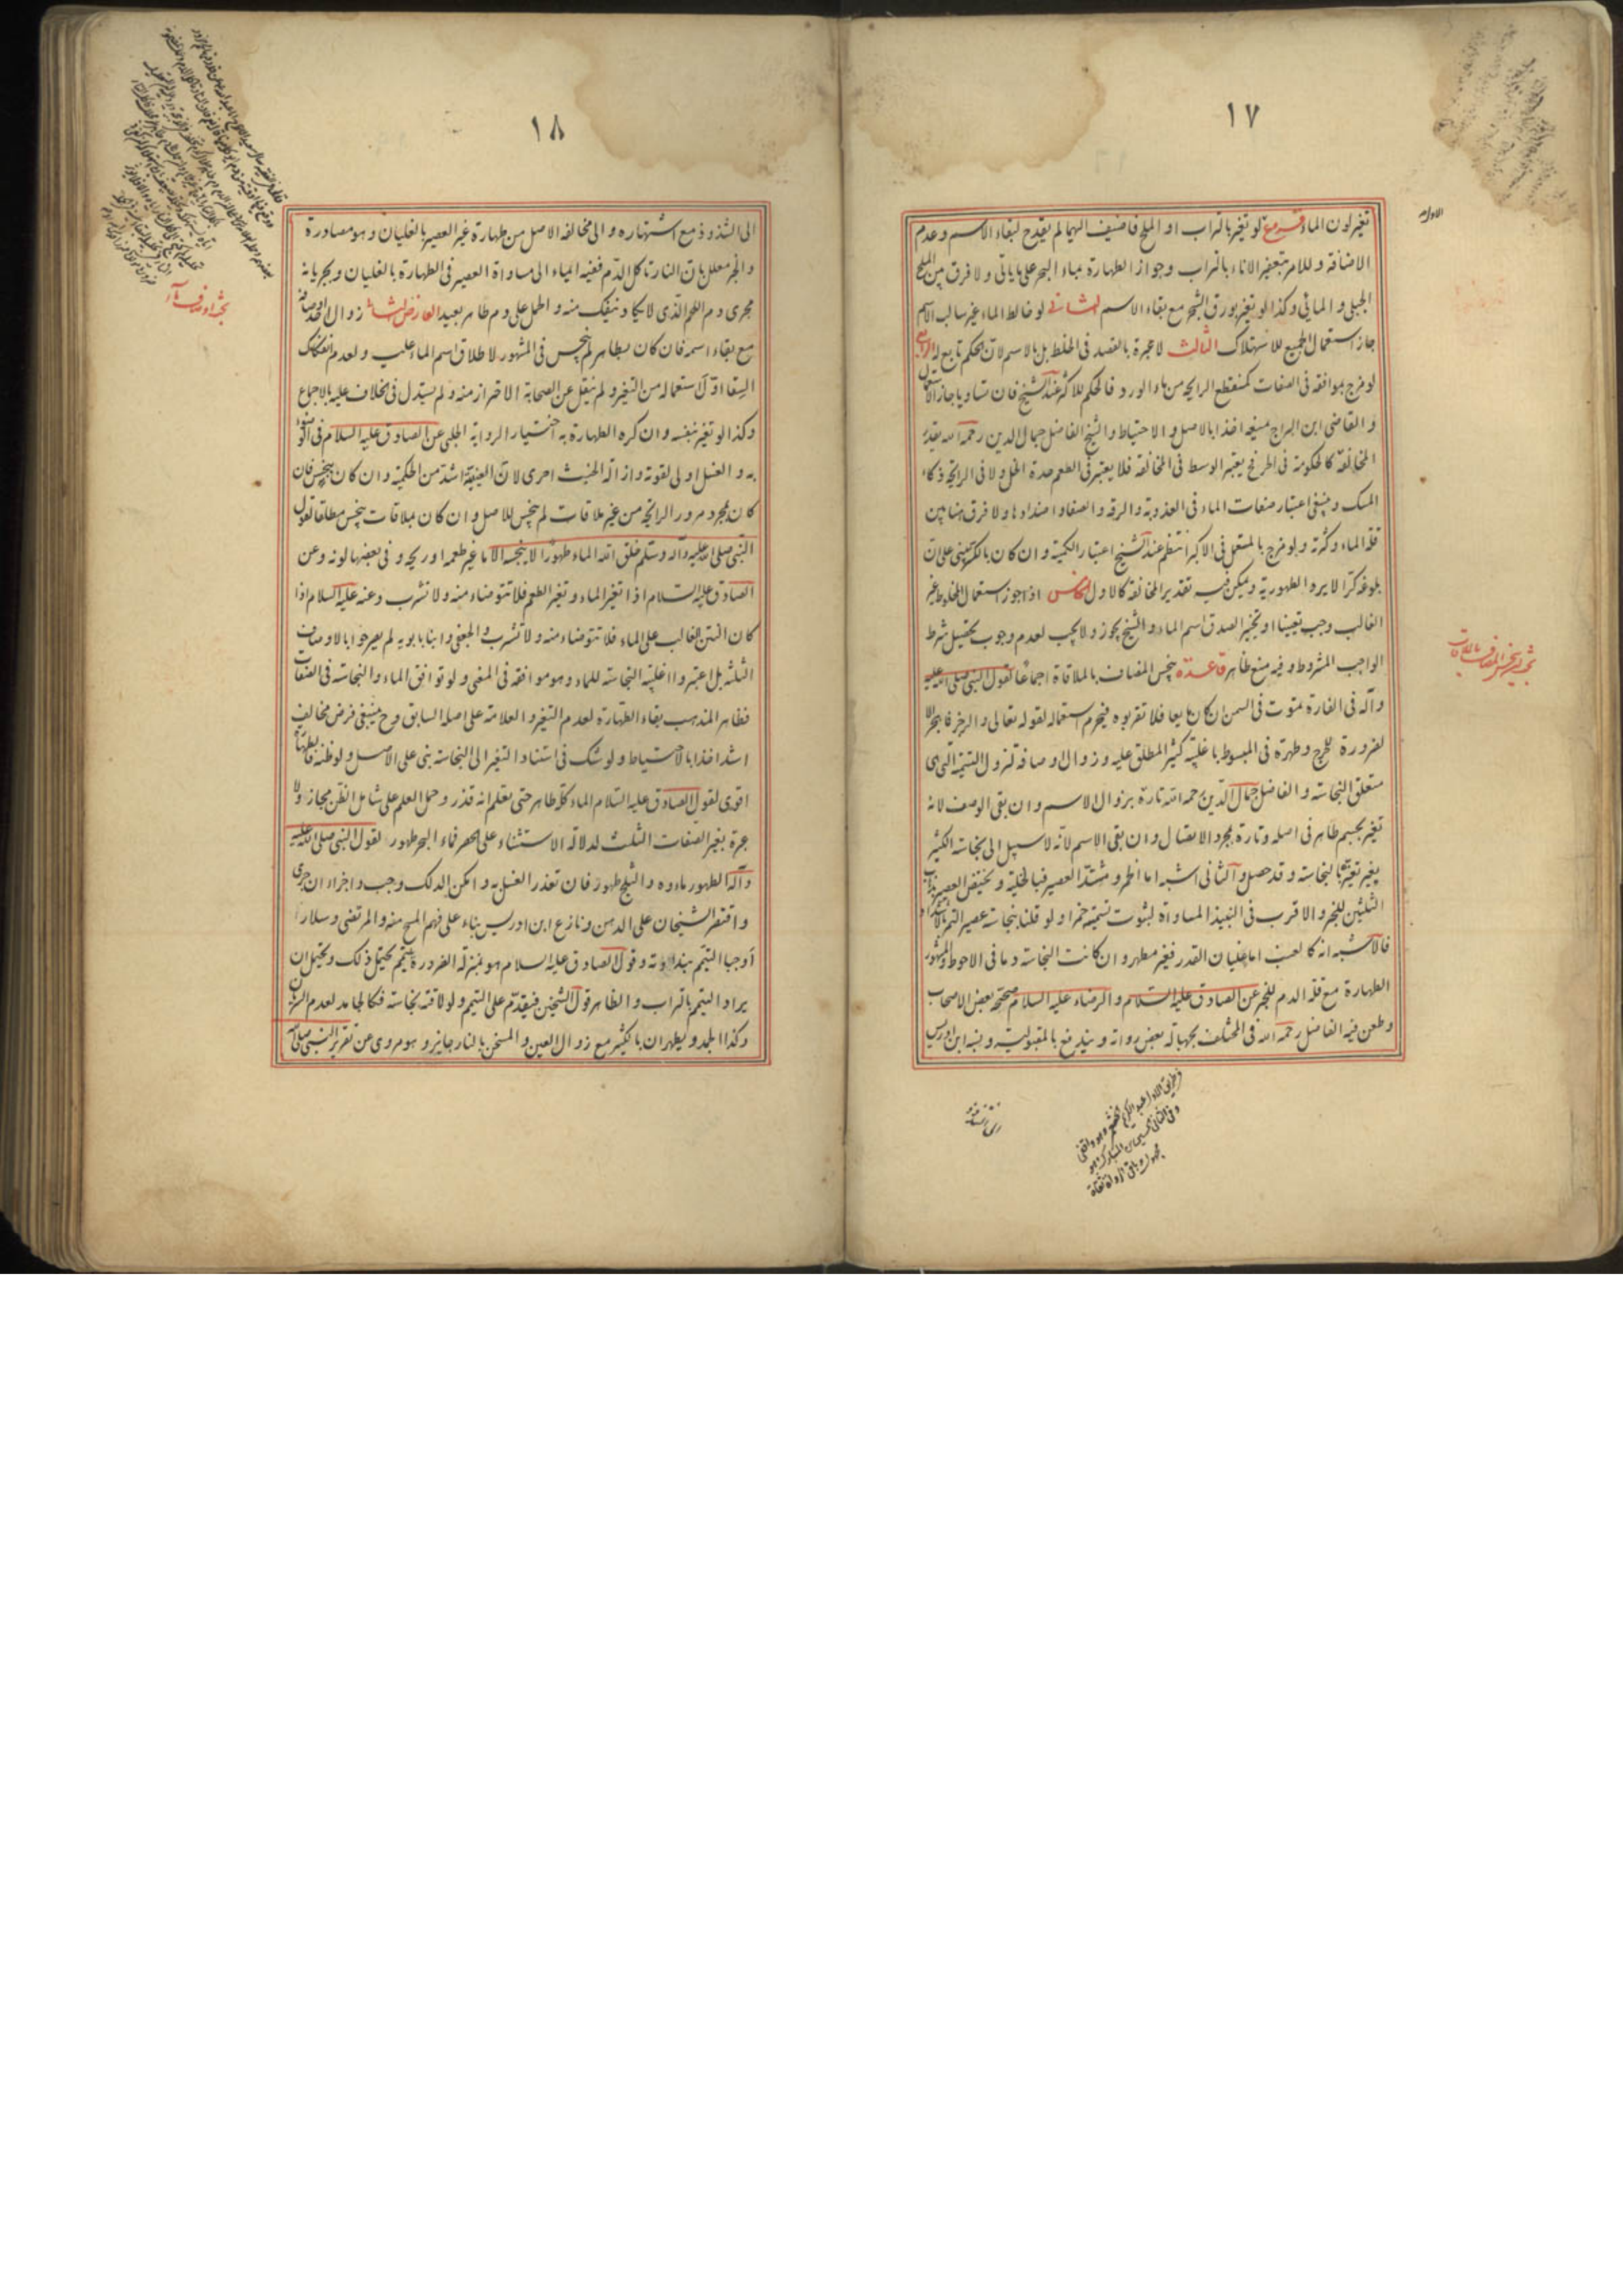 ١٧
تغير لون الماء فروع لو تغير بالتراب او الملح فاضيف اليهما لم يقدح لبقاء الاسم وعدم
الاضافة وللامر بتعفير الاناء بالتراب وجواز الطهارة بماء البحر على ما ياتى ولا فرق بين الملح
الجبلى والمائى وكذا لو تغير بورق الشجر مع بقاء الاسم الثانى لو خالط الماء غير سالب الاسم
جاز استعمال الجميع للاستهلاك الثالث لا عبرة بالقصد فى الخلط بل بالاسم لان الحكم تابع له الرابع
لو مزج بموافقه فى الصفات كمنقطع الرايحة من ماء الورد فالحكم للاكثر عند الشيخ فان تساويا جاز الاستعمال
والقاضى ابن البراج منعه اخذا بالاصل والاحتياط والشيخ الفاضل جمال الدين رحمه الله يقدر
المخالفة كالحكومة فى الحر فح يعتبر الوسط فى المخالفة فلا يعتبر فى الطعم حدة الخل ولا فى الرايحة ذكاء
المسك وينبغى اعتبار صفات الماء فى العذوبة والرقة والصفا واضدادها ولا فرق هنا بين
قلة الماء وكثرته ولو مزج بالمستعمل فى الاكبر انتظم عند الشيخ اعتبار الكمية وان كان بالكثير بنى على ان
بلوغه كرا لا يرد الطهورية ويمكن فيه تقدير المخالفة كالاول الخامس اذا جوز استعمال المخلوط غير
الغالب وجب تعيينا او تخييرا لصدق اسم الماء والشيخ يجوز ولا يجب لعدم وجوب تحصيل شرط
الواجب المشروط وفيه منع ظاهر قاعدة ينجس المضاف بالملاقاة اجماعا لقول النبى صلى الله عليه
وآله فى الفارة تموت فى السمن ان كان مايعا فلا تقربوه فيحرم استعماله لقوله تعالى والرجز فاهجر الا
لضرورة للحرج وطهره فى المبسوط باغلبية كثير المطلق عليه وزوال اوصافه لتزول التسمية التى هى
متعلق النجاسة والفاضل جمال الدين رحمه الله تارة بزوال الاسم وان بقى الوصف لانه
تغير بجسم طاهر فى اصله وتارة بمجرد الاتصال وان بقى الاسم لانه لا سبيل الى نجاسة الكثير
بغير تغيره بالنجاسة وقد حصل والثانى اشبه اما الخمر ومشتد العصير فبالخلية ويختص العصير بذهاب
الثلثين للخبر والاقرب فى النبيذ المساواة لثبوت تسميته خمرا ولو قلنا بنجاسة عصير التمر بالاشتداد
فالاشبه انه كالعنب اما غليان القدر فغير مطهر وان كانت النجاسة دما فى الاحوط والمشهور
الطهارة مع قلة الدم للخبر عن الصادق عليه السلام والرضاء عليه السلام صححه بعض الاصحاب
وطعن فيه الفاضل رحمه الله فى المختلف بجهالة بعض رواته ويندفع بالمقبولية ونسبه ابن ادريس
١٨
الى الشذوذ مع اشتهاره والى مخالفة الاصل من طهارة غير العصير بالغليان وهو مصادرة
والخبر معلل بان النار تاكل الدم ففيه ايماء الى مساواة العصير فى الطهارة بالغليان ويجريانه
مجرى دم اللحم الذى لا يكاد ينفك منه والحمل على دم طاهر بعيد العارض الثالث زوال احد اوصافه
مع بقاء اسمه فان كان بطاهر لم ينجس فى المشهور لاطلاق اسم الماء عليه ولعدم انفكاك
السقا اول استعماله من التغير ولم ينقل عن الصحابة الاحتراز منه ولم يستدل فى الخلاف عليه بالاجماع
وكذا لو تغير بنفسه وان كره الطهارة به اختيارا لرواية الحلبى عن الصادق عليه السلام فى الوضوء
به والغسل اولى لقوته وازالة الخبث احرى لان العينية اشد من الحكمية وان كان بنجس فان
كان بمجرد مرور الرايحة من غير ملاقات لم ينجس للاصل وان كان بملاقات ينجس مطلقا لقول
النبى صلى الله عليه وآله وسلم خلق الله الماء طهورا لا ينجسه الا ما غير طعمه او ريحه وفى بعضها لونه وعن
الصادق عليه السلام اذا تغير الماء وتغير الطعم فلا تتوضاء منه ولا تشرب وعنه عليه السلام اذا
كان النتن الغالب على الماء فلا تتوضاء منه ولا تشرب والجعفى وابنا بابويه لم يصرحوا بالاوصاف
الثلثة بل اعتبروا اغلبية النجاسة للماء وهو موافقة فى المعنى ولو توافق الماء والنجاسة فى الصفات
فظاهر المذهب بقاء الطهارة لعدم التغير والعلامة على اصله السابق وح ينبغى فرض مخالف
اشد اخذا بالاحتياط ولو شك فى استناد التغير الى النجاسة بنى على الاصل ولو ظنه فالطهارة
اقوى لقول الصادق عليه السلام الماء كله طاهر حتى يعلم انه قذر وحمل العلم على شامل الظن مجاز ولا
عبرة بغير الصفات الثلث لدلالة الاستثناء على الحصر فماء البحر طهور لقول النبى صلى الله عليه
وآله الطهور ماءوه والثلج طهور فان تعذر الغسل به وامكن الدلك وجب واجزاء ان جرى
واقتصر الشيخان على الدهن ونازع ابن ادريس بناء على فهم المسح منه والمرتضى وسلار
اوجبا التيمم بنداوته وقول الصادق عليه السلام هو بمنزلة الضرورة يتيمم يحتمل ذلك ويحتمل ان
يراد التيمم بالتراب والظاهر قول الشيخين فيقدم على التيمم ولو لاقته نجاسة فكالجامد لعدم السريان
وكذا الجمد ويطهران بالكثير مع زوال العين والمسخن بالنار جايز وهو مروى عن تقرير النبى صلى الله